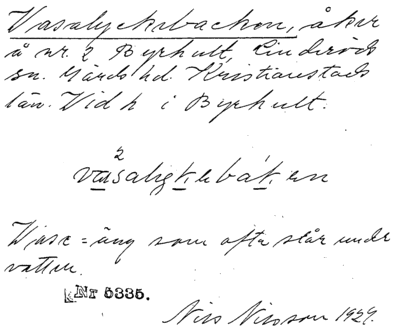 Vasalyckebacken, åker
å nr. 2 Byrhult, Linderöds
sn. Gärds hd. Kristianstads
län. Vid h i Byrhult.
2
Wase = äng som ofta står under
vatten.
Nr 5335.
Nils Nilsson 1929.